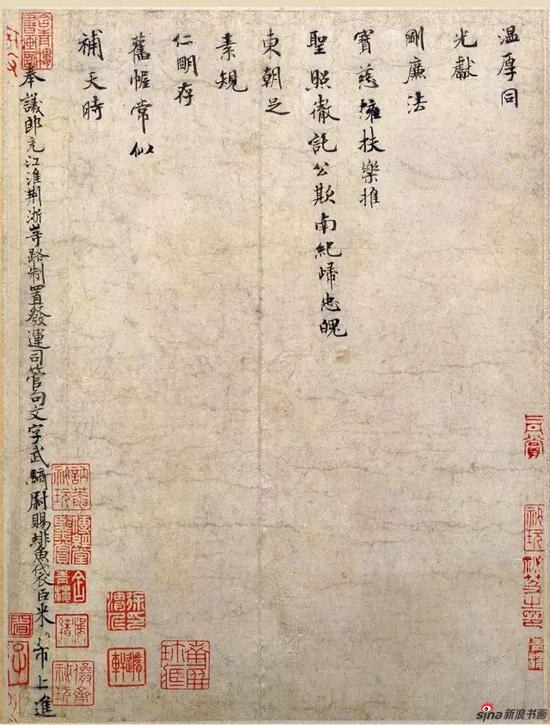 溫厚同
光獻
剛廉法
寶慈擁扶樂推
聖照徹託公欺南紀歸忠魄
東朝足
素規
仁明存
舊幄常似
補天時
奉議郎充江淮荆浙等路制置發運司管句文字武騎尉賜緋魚袋臣米芾上進
sina新浪书画